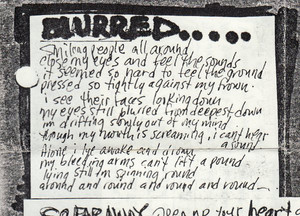 BLURRED.....
Smiling people all around
close my eyes and feel the sounds
it seemed so hard to feel the ground
pressed so tightly against my frown.
i see their faces looking down
my eyes still blurred from deepest down
im drifting slowly out of my mind
though my mouth is screaming, i cant hear
a sound
Alone i lye awake and drown
my bleeding arms can't lift a pound
lying still im spinning round
around and round and round and round
SO FAR AWAY open up your heart